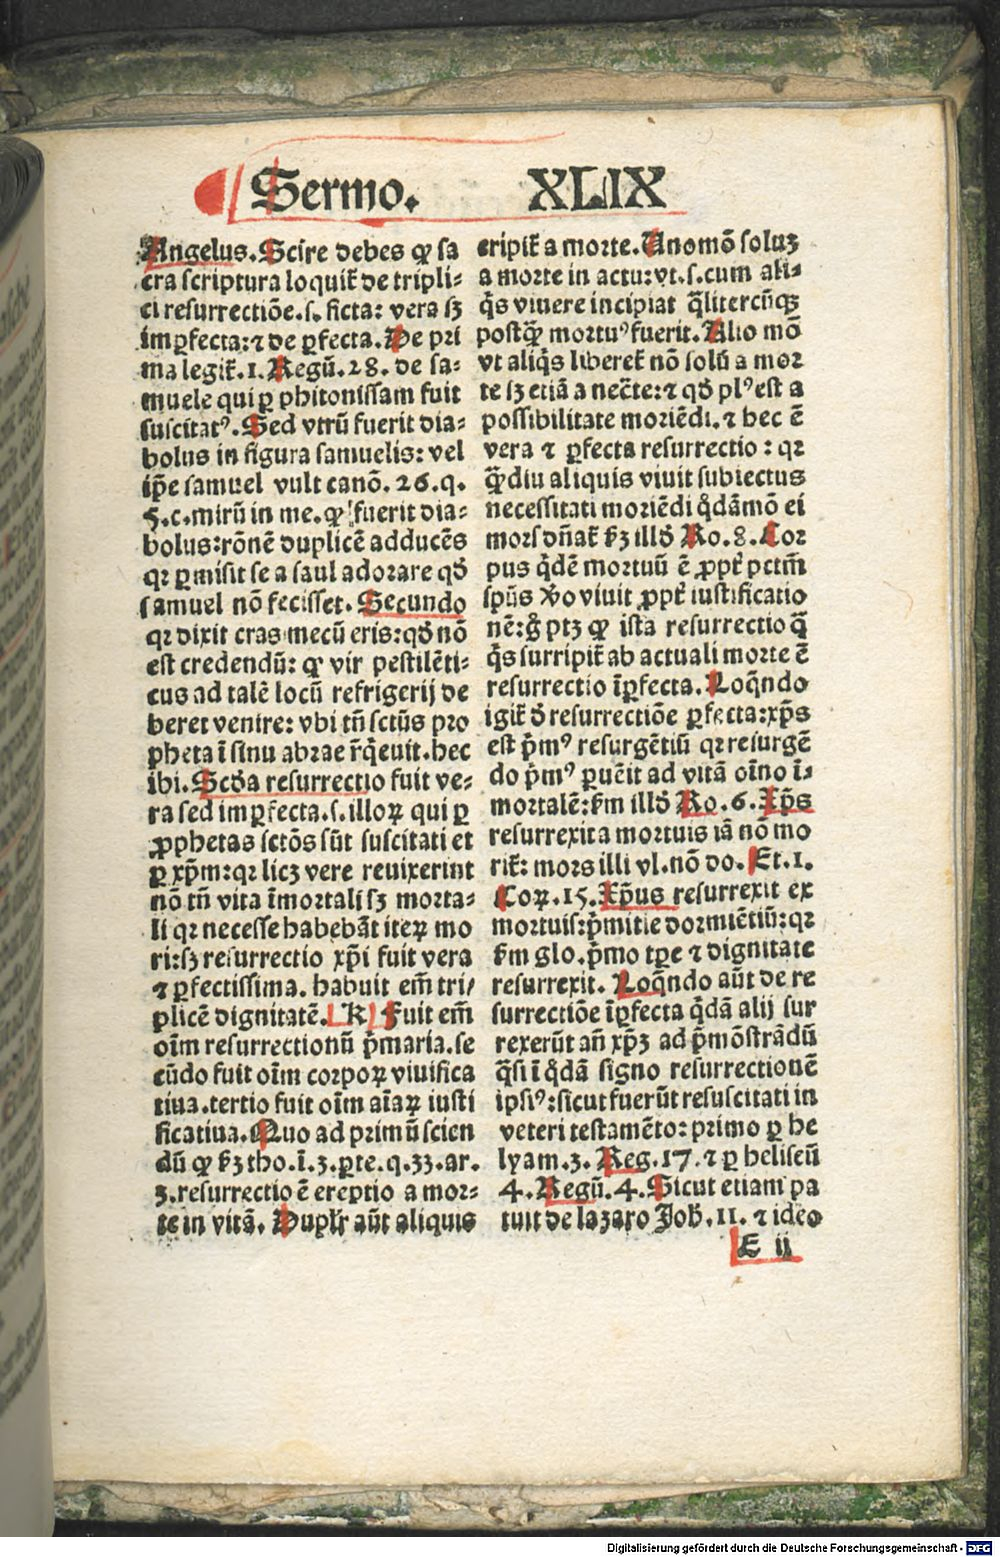 Sermo. XLIX
Angelus. Scire debes qꝙ sa
cra scriptura loquit̃ de tripli⸗
ci resurrectiõe.s. ficta: vera sꝫ
imꝑfecta: ⁊ de ꝑfecta. De pri
ma legit̃. 1. Regũ. 28. de sa⸗
muele qui ꝑ phitonissam fuit
suscitatꝰ. Sed vtrũ fuerit dia⸗
bolus in figura samuelis: vel
ip̃e samuel vult canõ. 26. q.
5. c. mirũ in me. ꝙ fuerit dia⸗
bolus: rõnẽ duplicẽ adducẽs
qꝛ ꝑmisit se a saul adorare qd̃
samuel nõ fecisset. Secundo
qꝛ dixit cras mecũ eris: qd̃ nõ
est credendũ: ꝙ vir pestilẽti⸗
cus ad talẽ locũ refrigerij de
beret venire: vbi tñ sctũs pro
pheta ĩ sinu abrae r̃q̃euit. hec
ibi. Scd̃a resurrectio fuit ve⸗
ra sed imꝑfecta.s. illoꝝ qui ꝑ
ꝓphetas sctõs sũt suscitati et
ꝑ xp̃m: qꝛ licꝫ vere reuixerint
nõ tñ vita ĩmortali sꝫ morta⸗
li qꝛ necesse habebãt iteꝝ mo
ri: sꝫ resurrectio xp̃i fuit vera
⁊ ꝑfectissima. habuit em̃ tri⸗
plicẽ dignitatẽ. K Fuit em̃
oĩm resurrectionũ p̃maria. se
cũdo fuit oĩm corpoꝝ viuifica
tiua. tertio fuit oĩm aĩaꝝ iusti
ficatiua. Quo ad primũ scien
dũ ꝙ ẜꝫ tho. ĩ. 3. ꝑte. q. 33. ar.
3. resurrectio ẽ ereptio a mor⸗
te in vitã. Duplr̃ aũt aliquis
eripit̃ a morte. Unomõ soluꝫ
a morte in actu: vt.s. cum ali⸗
q̃s viuere incipiat q̃litercũqꝫ
postq̃ mortuꝰ fuerit. Alio mõ
vt aliq̃s liberet̃ nõ solũ a mor
te sꝫ etiã a nec̃te: ⁊ qd̃ plꝰ est a
possibilitate moriẽdi. ⁊ hec ẽ
vera ⁊ ꝑfecta resurrectio: qꝛ
q̃diu aliquis viuit subiectus
necessitati moriẽdi q̃dãmõ ei
mors dñat̃ ẜꝫ illd̃ Ro. 8. Cor
pus q̃dẽ mortuũ ẽ ꝓpt̃ pctm̃
spũs ṽo viuit ꝓpt̃ iustificatio
nẽ: g̃ ptꝫ ꝙ ista resurrectio q̃
q̃s surripit̃ ab actuali morte ẽ
resurrectio ĩꝑfecta. Loq̃ndo
igit̃ d̃ resurrectiõe ꝑfecta: xp̃s
est p̃mꝰ resurgẽtiũ qꝛ resurgẽ
do p̃mꝰ ꝑuẽit ad vitã oĩno ĩ⸗
mortalẽ: ẜm illd̃ Ro. 6. Xp̃s
resurrexit a mortuis iã nõ mo
rit̃: mors illi vl. nõ do. Et. 1.
Coꝝ. 15. Xp̃us resurrexit ex
mortuis: p̃mitie dormiẽtiũ: qꝛ
ẜm glo. p̃mo tꝑe ⁊ dignitate
resurrexit. Loq̃ndo aũt de re
surrectiõe ĩꝑfecta q̃dã alij sur
rexerũt añ xp̃ꝫ ad p̃mõstrãdũ
q̃si ĩ q̃dã signo resurrectionẽ
ipsiꝰ: sicut fuerũt resuscitati in
veteri testamẽto: primo ꝑ he
lyam. 3. Reg. 17. ⁊ ꝑ heliseũ
4. Regũ. 4. Sicut etiam pa
tuit de lazaro Joh̃. 11. ⁊ ideo
E ii
Digitalisierung gefördert durch die Deutsche Forschungsgemeinschaft - DFG